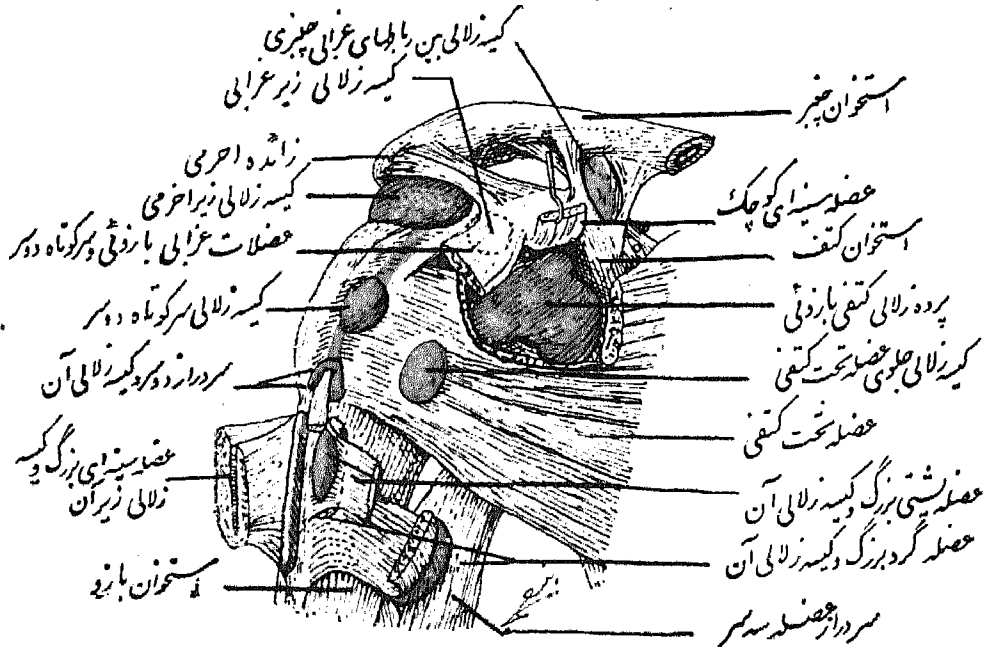 کیسه زلالی بین رباطهای غرابی چنبری
کیسه زلالی زیر غرابی
استخوان چنبر
زائده اخرمی
کیسه زلالی زیر اخرمی
عضلات غرابی بازوئی و سر کوتاه دوسر
کیسه زلالی سر کوتاه دوسر
سر دراز دوسر و کیسه زلالی آن
عضله سینه ای بزرگ و کیسه
زلالی زیر آن
استخوان بازو
عضله سینه ای کوچک
استخوان کتف
پرده زلالی کتفی بازوئی
کیسه زلالی جلوی عضله تحت کتفی
عضله تحت کتفی
عضله پشتی بزرگ و کیسه زلالی آن
عضله گرد بزرگ و کیسه زلالی آن
سر دراز عضله سه سر